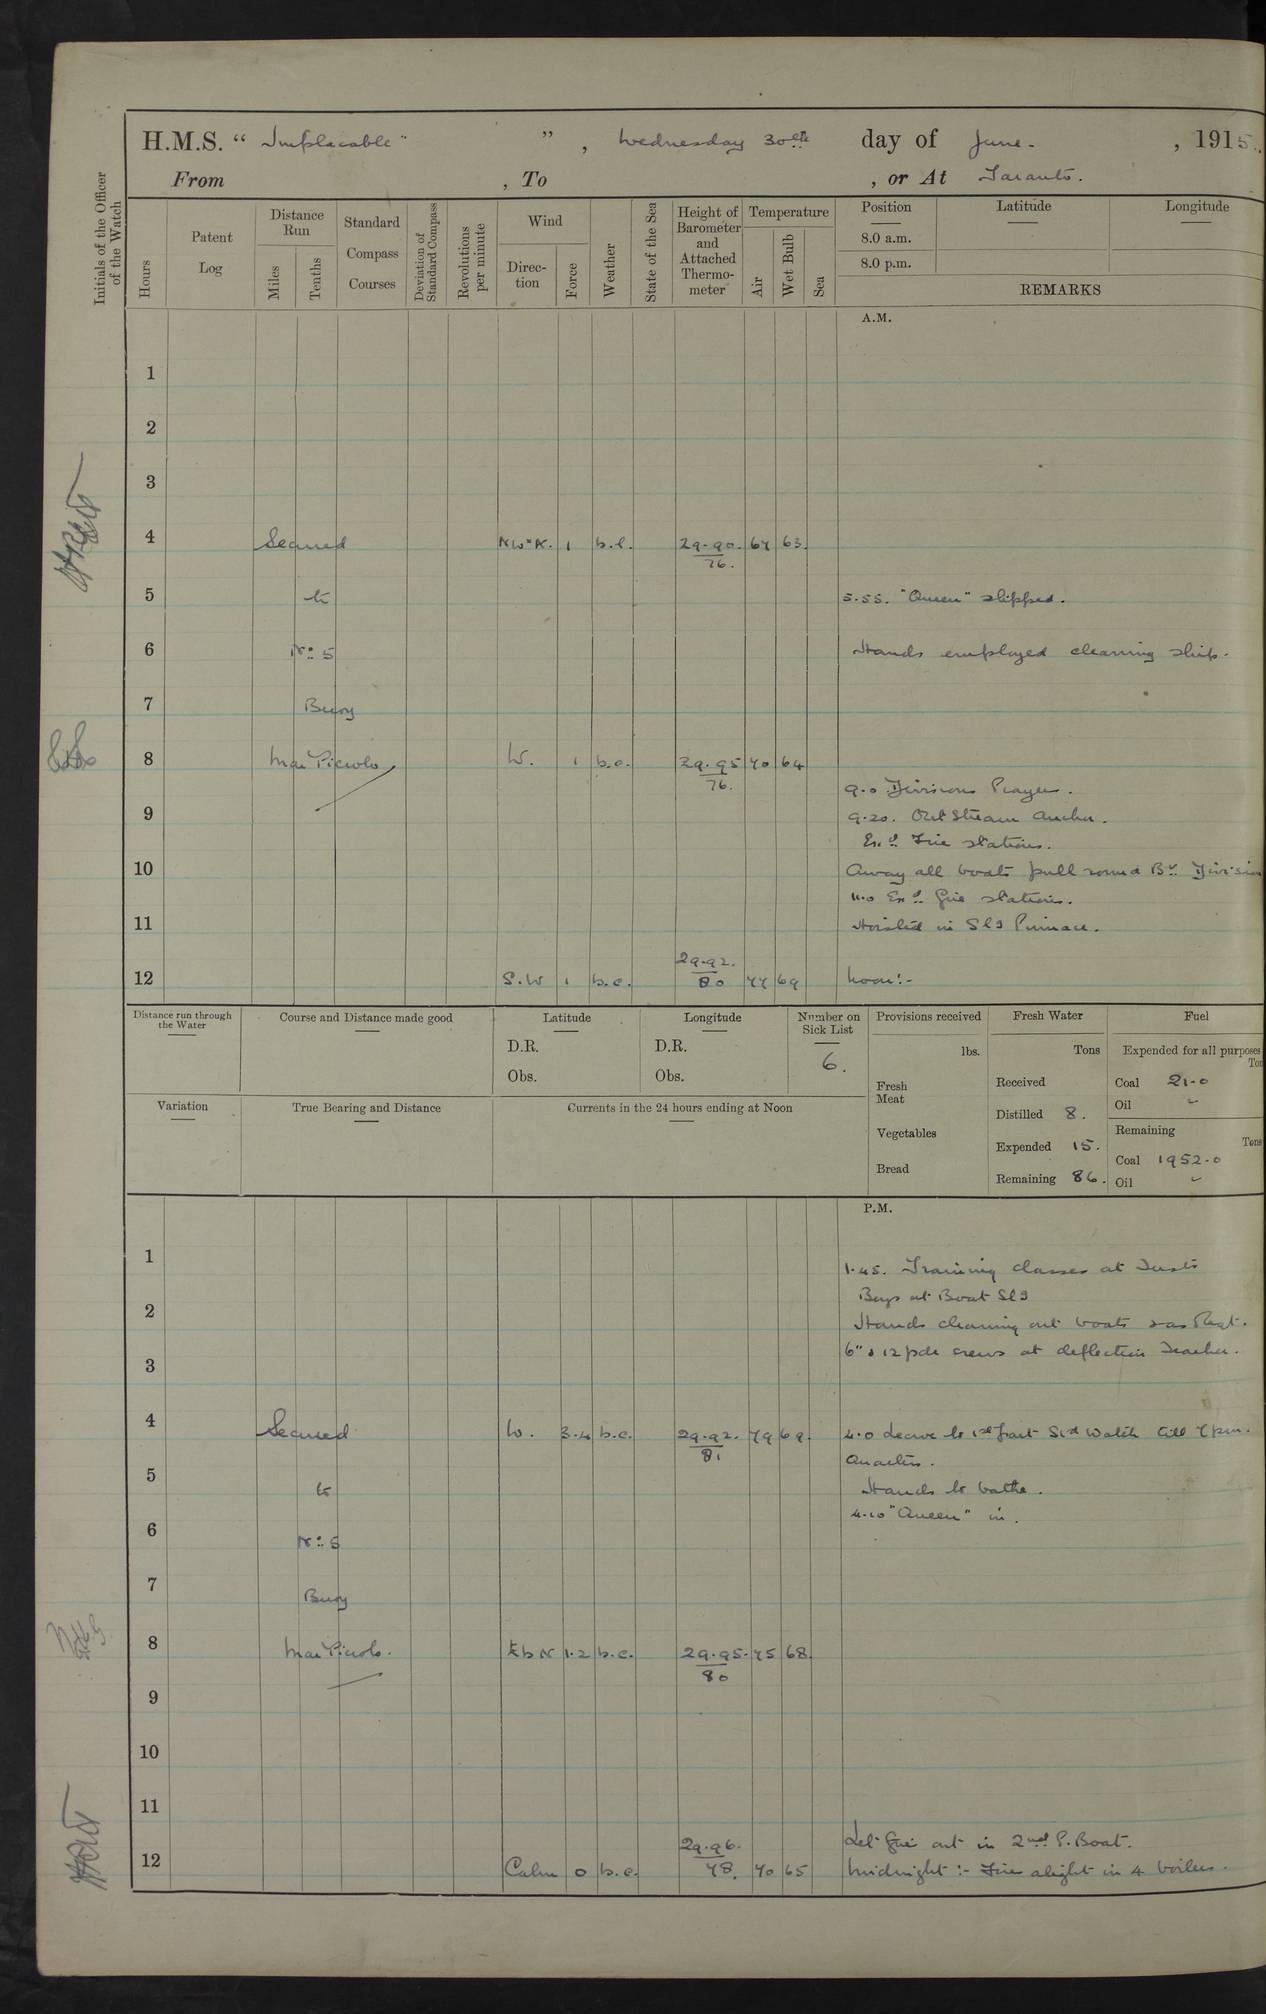 H.M.S. “ Implacable ” , Wednesday 30th day of June. , 1915.
From , To , or At Taranto.
Initials of the Officer of the Watch
Hours
Patent Log
Distance Run
Miles
Tenths
Standard Compass Courses
Deviation of Standard Compass
Revolutions per minute
Wind
Direction
Force
Weather
State of the Sea
Height of Barometer and Attached Thermometer
Temperature
Air
Wet Bulb
Sea
Position
8.0 a.m.
8.0 p.m.
Latitude
Longitude
REMARKS
A.M.
1
2
3
4 Secured NW"N. 1 b.c. 29.90. 67 63.
76.
5 to 5.55. "Queen" slipped.
6 No 5 Hands employed cleaning ship.
7 Buoy
8 Mar Piccolo W. 1 b.c. 29.95 70 64
76.
9.0 Divisions Prayers.
9 9.20. Out Stream Anchor.
Exd. Fire stations.
10 Away all boats pull round By Division
11.0 Exd. fire stations.
11 Hoisted in Slg Pinnace.
29.92.
12 S.W 1 b.c. 80 77 69 Noon:-
Distance run through the Water
Course and Distance made good
Latitude
D.R.
Obs.
Longitude
D.R.
Obs.
Number on Sick List
6.
Provisions received
lbs.
Fresh Meat
Vegetables
Bread
Fresh Water
Tons
Received
Distilled 8.
Expended 15.
Remaining 86.
Fuel
Expended for all purposes
Tons
Coal 21.0
Oil
Remaining
Tons
Coal 1952.0
Oil
Variation
True Bearing and Distance
Currents in the 24 hours ending at Noon
P.M.
1
1.45. Training classes at Insts
Boys at Boat Slg
2
Hands cleaning out boats
6" & 12 pdr crews at deflection Teacher.
3
4 Secured W. 3.4 b.c. 29.92. 79 69. 4.0 Leave to 1st part Watch till 7pm.
81
Quarters.
5
to Hands to bathe.
4.10 "Queen" in.
6
No 5
7
Buoy
8 Mar Piccolo. EbN 1.2 b.c. 29.95. 75 68.
80
9
10
11
29.96. Let fire out in 2nd P. Boat.
12 Calm 0 b.c. 78. 70 65 Midnight:- Fires alight in 4 boilers.